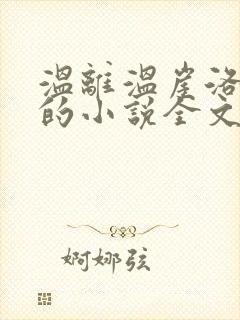 溫離溫崖洛
的小說全文
婀娜弦